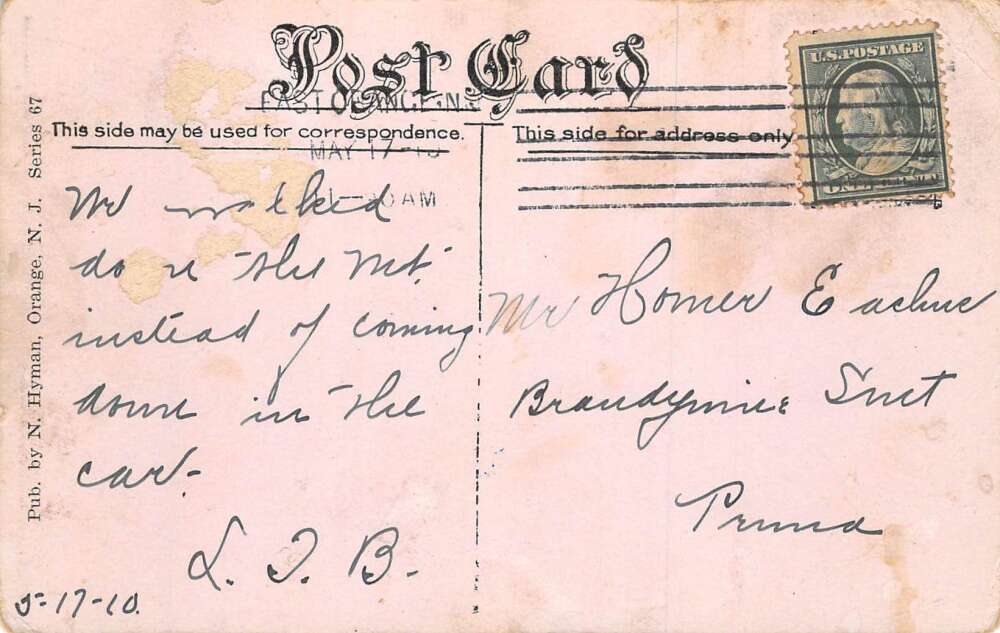 Post Card
EAST ORANGE N.
This side may be used for correspondence.
MAY 17-10
AM
This side for address only
U.S. POSTAGE
Pub. by N. Hyman, Orange, N. J. Series 67
We walked
down the Mt.
instead of coming
down in the
car-
L. I. B.
5-17-10.
Mr Homer Eachus
Brandywine Smt
Penna